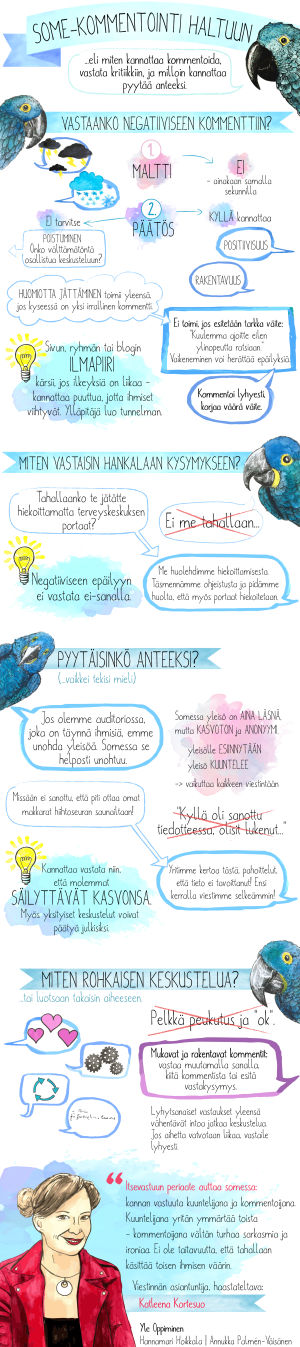 SOME-KOMMENTOINTI HALTUUN
...eli miten kannattaa kommentoida,
vastata kritiikkiin, ja milloin kannattaa
pyytää anteeksi.
VASTAANKO NEGATIIVISEEN KOMMENTTIIN?
1.
MALTTI
EI
- ainakaan samalla
sekunnilla
2.
PÄÄTÖS
EI tarvitse
KYLLÄ kannattaa
POISTUMINEN
Onko välttämätöntä
osallistua keskusteluun?
POSITIIVISUUS
RAKENTAVUUS
HUOMIOTTA JÄTTÄMINEN toimii yleensä,
jos kyseessä on yksi irrallinen kommentti.
Ei toimi, jos esitetään tarkka väite:
"Kuulemma ajoitte eilen
ylinopeutta ratsiaan."
Vaikeneminen voi herättää epäilyksiä.
Sivun, ryhmän tai blogin
ILMAPIIRI
kärsii, jos ilkeyksiä on liikaa -
kannattaa puuttua, jotta ihmiset
viihtyvät. Ylläpitäjä luo tunnelman.
Kommentoi lyhyesti,
korjaa väärä väite.
MITEN VASTAISIN HANKALAAN KYSYMYKSEEN?
Tahallaanko te jätätte
hiekoittamatta terveyskeskuksen
portaat?
Ei me tahallaan...
Negatiiviseen epäilyyn
ei vastata ei-sanalla.
Me huolehdimme hiekoittamisesta.
Täsmennämme ohjeistusta ja pidämme
huolta, että myös portaat hiekoitetaan.
PYYTÄISINKÖ ANTEEKSI?
(...vaikkei tekisi mieli)
Jos olemme auditoriossa,
joka on täynnä ihmisiä, emme
unohda yleisöä. Somessa se
helposti unohtuu.
Somessa yleisö on AINA LÄSNÄ,
mutta KASVOTON ja ANONYYMI.
yleisölle ESIINNYTÄÄN
yleisö KUUNTELEE
-> vaikuttaa kaikkeen viestintään
Missään ei sanottu, että piti ottaa omat
makkarat hiihtoseuran saunailtaan!
"Kyllä oli sanottu
tiedotteessa, olisit lukenut..."
Kannattaa vastata niin,
että molemmat
SÄILYTTÄVÄT KASVONSA.
Myös yksityiset keskustelut voivat
päätyä julkisiksi.
Yritimme kertoa tästä, pahoittelut,
että tieto ei tavoittanut! Ensi
kerralla viestimme selkeämmin!
MITEN ROHKAISEN KESKUSTELUA?
...tai luotsaan takaisin aiheeseen
Pelkkä peukutus ja "ok".
Mukavat ja rakentavat kommentit:
vastaa muutamalla sanalla,
kiitä kommentista tai esitä
vastakysymys.
Lyhytsanaiset vastaukset yleensä
vähentävät intoa jatkaa keskustelua.
Jos aihetta vatvotaan liikaa, vastaile
lyhyesti.
"Itsevastuun periaate auttaa somessa:
kannan vastuuta kuuntelijana ja kommentoijana.
Kuuntelijana yritän ymmärtää toista
- kommentoijana vältän turhaa sarkasmia ja
ironiaa. Ei ole taitavuutta, että tahallaan
käsittää toisen ihmisen väärin.
Viestinnän asiantuntija, haastateltava:
Katleena Kortesuo
Yle Oppiminen
Hannamari Hoikkala | Annukka Palmén-Väisänen